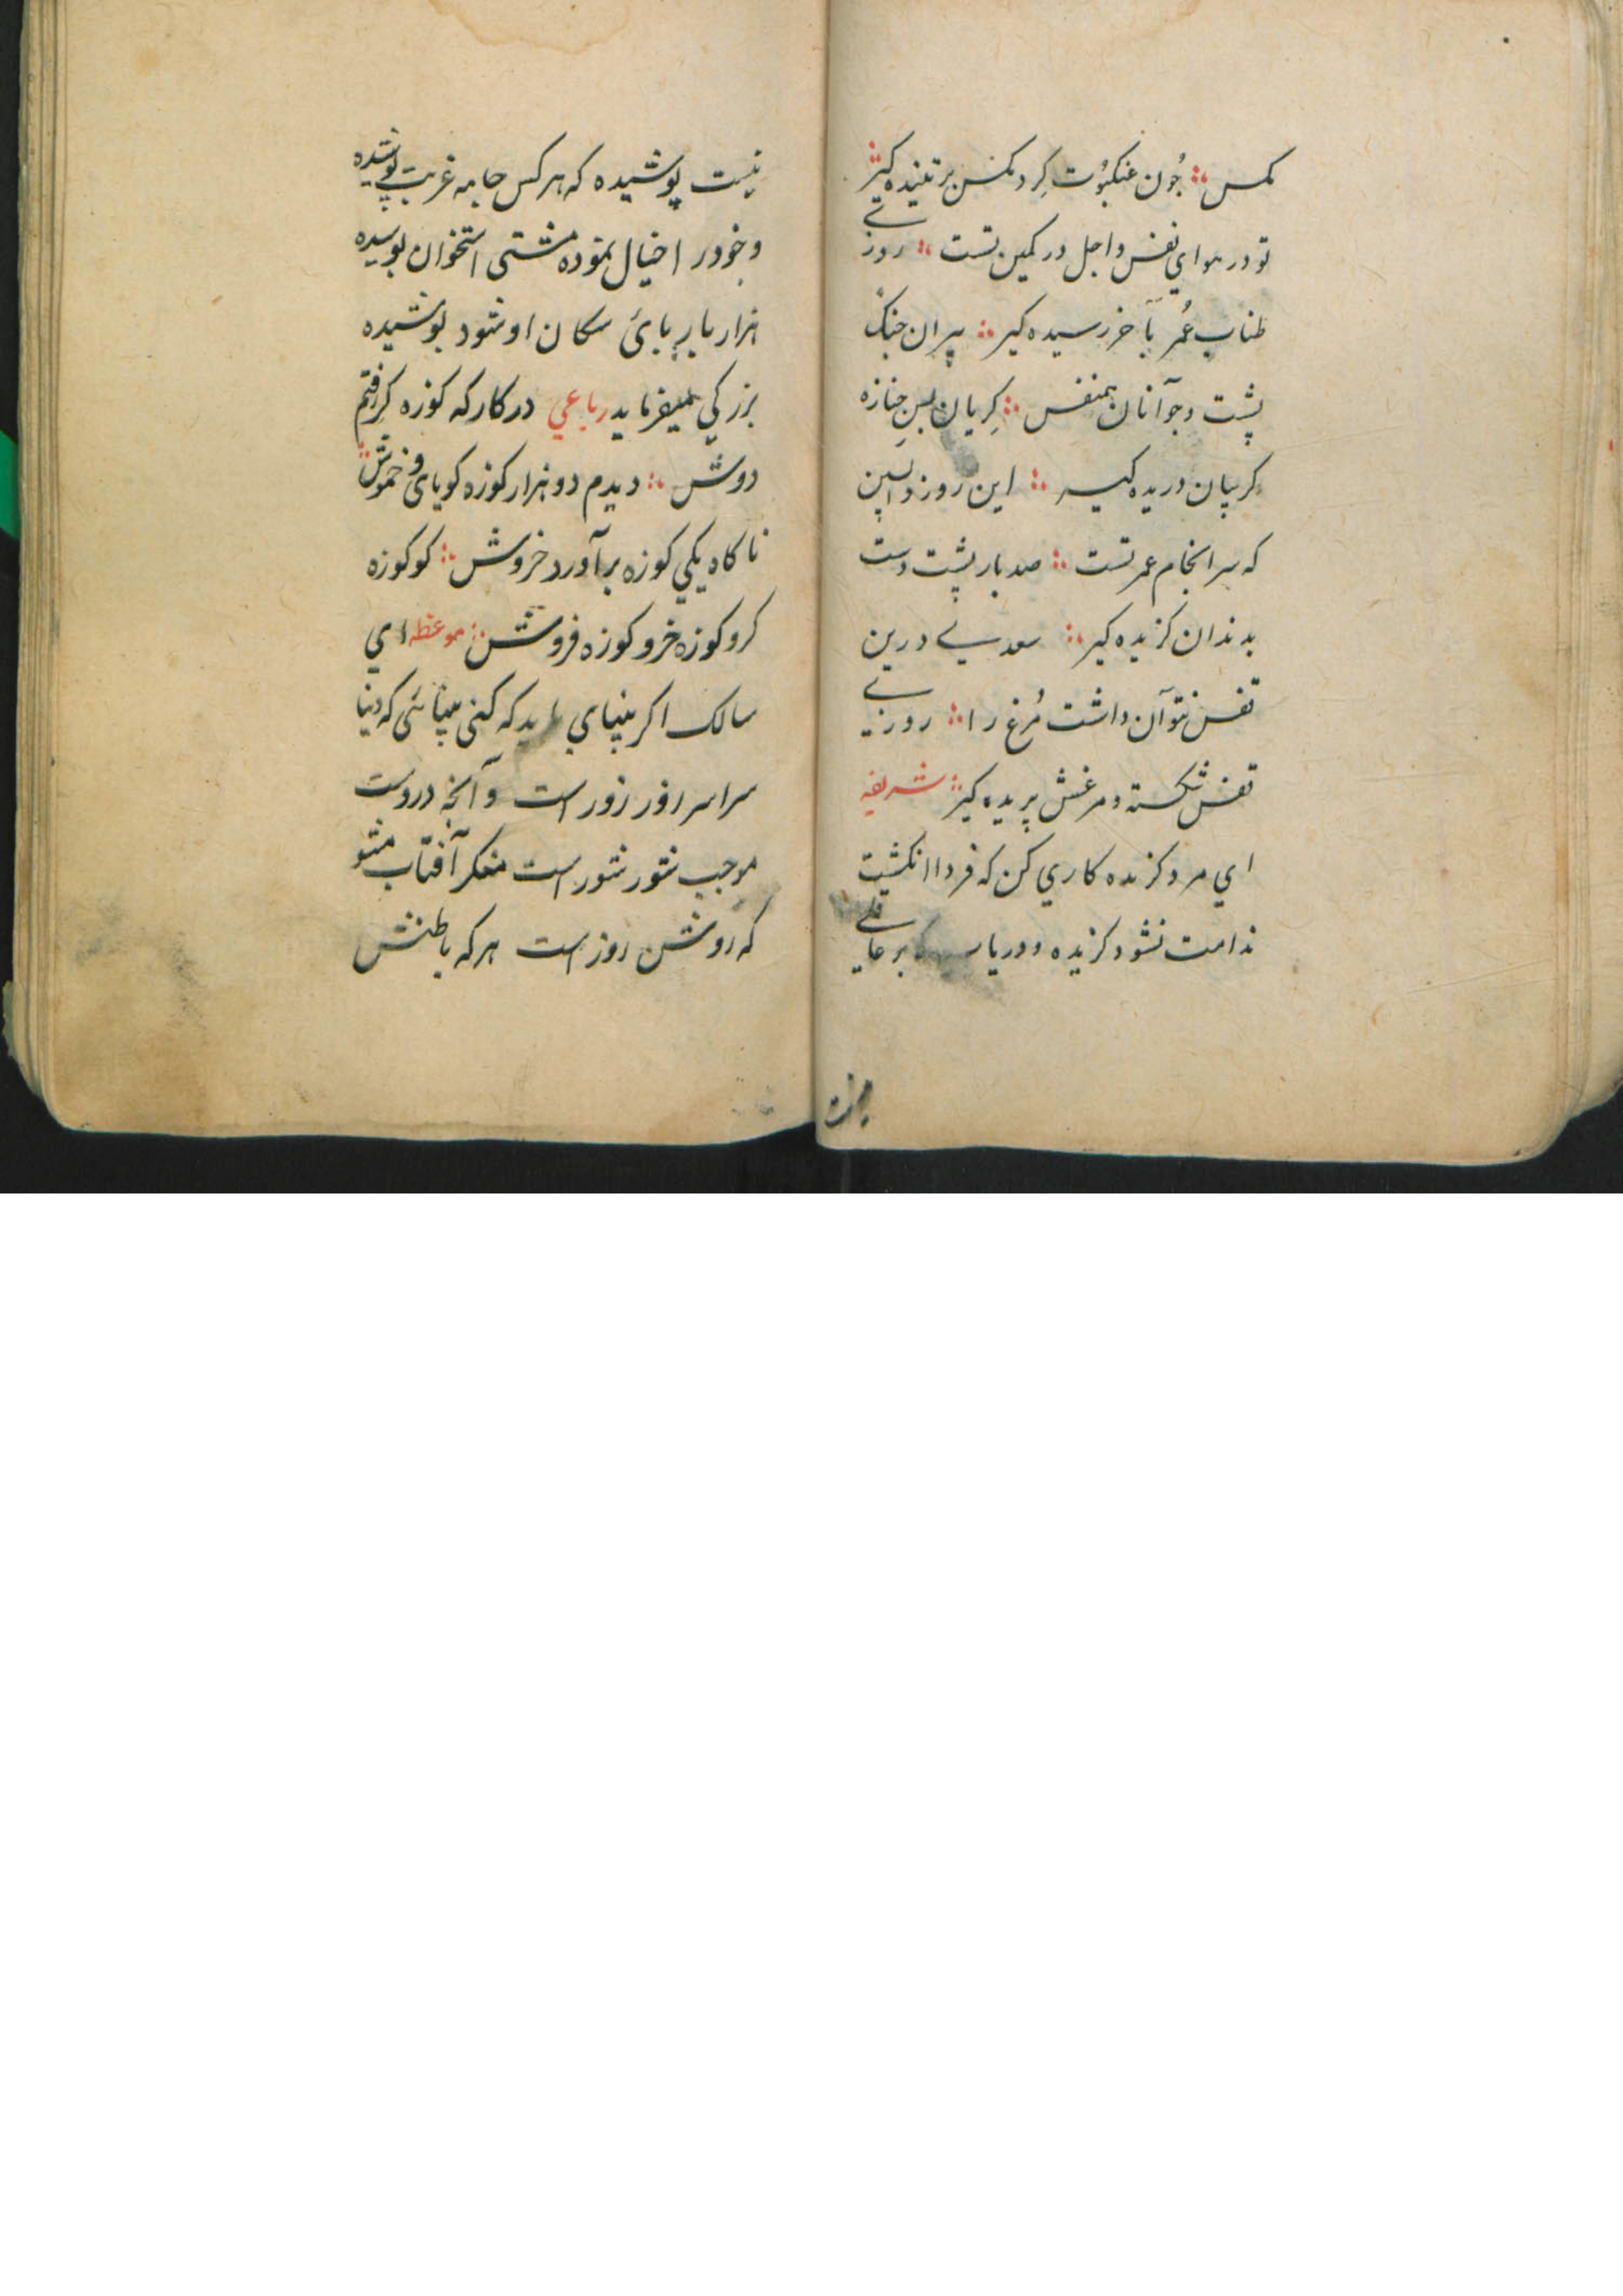 مکس ⁘ جُون عنکبُوت کِرد مکس بر تنیده کیر ⁘
تو در هواي نفس و اجل در کمین تست ⁘ روزے
طناب عُمر بآخر رسیده کیر ⁘ پیران جنک
پشت و جوآنان همنفس ⁘ کِریان پسِ جنازه
کریبان دریده کیر ⁘ این روز واپسین
که سرانجام عمر تست ⁘ صد بار پشت دست
بدندان کزیده کیر ⁘ سعدیے درین
قفس نتوآن داشت مُرغ را ⁘ روزیے
قفس شکسته و مرغش پریده کیر ⁘ شریفه
اي مرد کزنده کاري کن که فردا انکشت
ندامت نشود کزیده و دریاب که بر عاقلے
نیست پوشیده که هر کس جامه غریت پوشیده
وخود را خیال نموده مشتی استخوان بوسیده
هزار بار بپایٔ سکان او شود بوشیده
بزرکي میفرماید رباعي در کارکه کوزه کرفتم
دوش ⁘ دیدم دو هزار کوزه کویای و خموش ⁘
ناکاه یکي کوزه برآورد خروش ⁘ کو کوزه
کر و کوزه خر و کوزه فروش ⁘ موعظه اي
سالک اکر بینایي باید که کنی بینائی که دنیا
سراسر زور زور است و آنچه دروست
موجب شور شور است منکر آفتاب مشو
که روشن روز است هر که باطنش